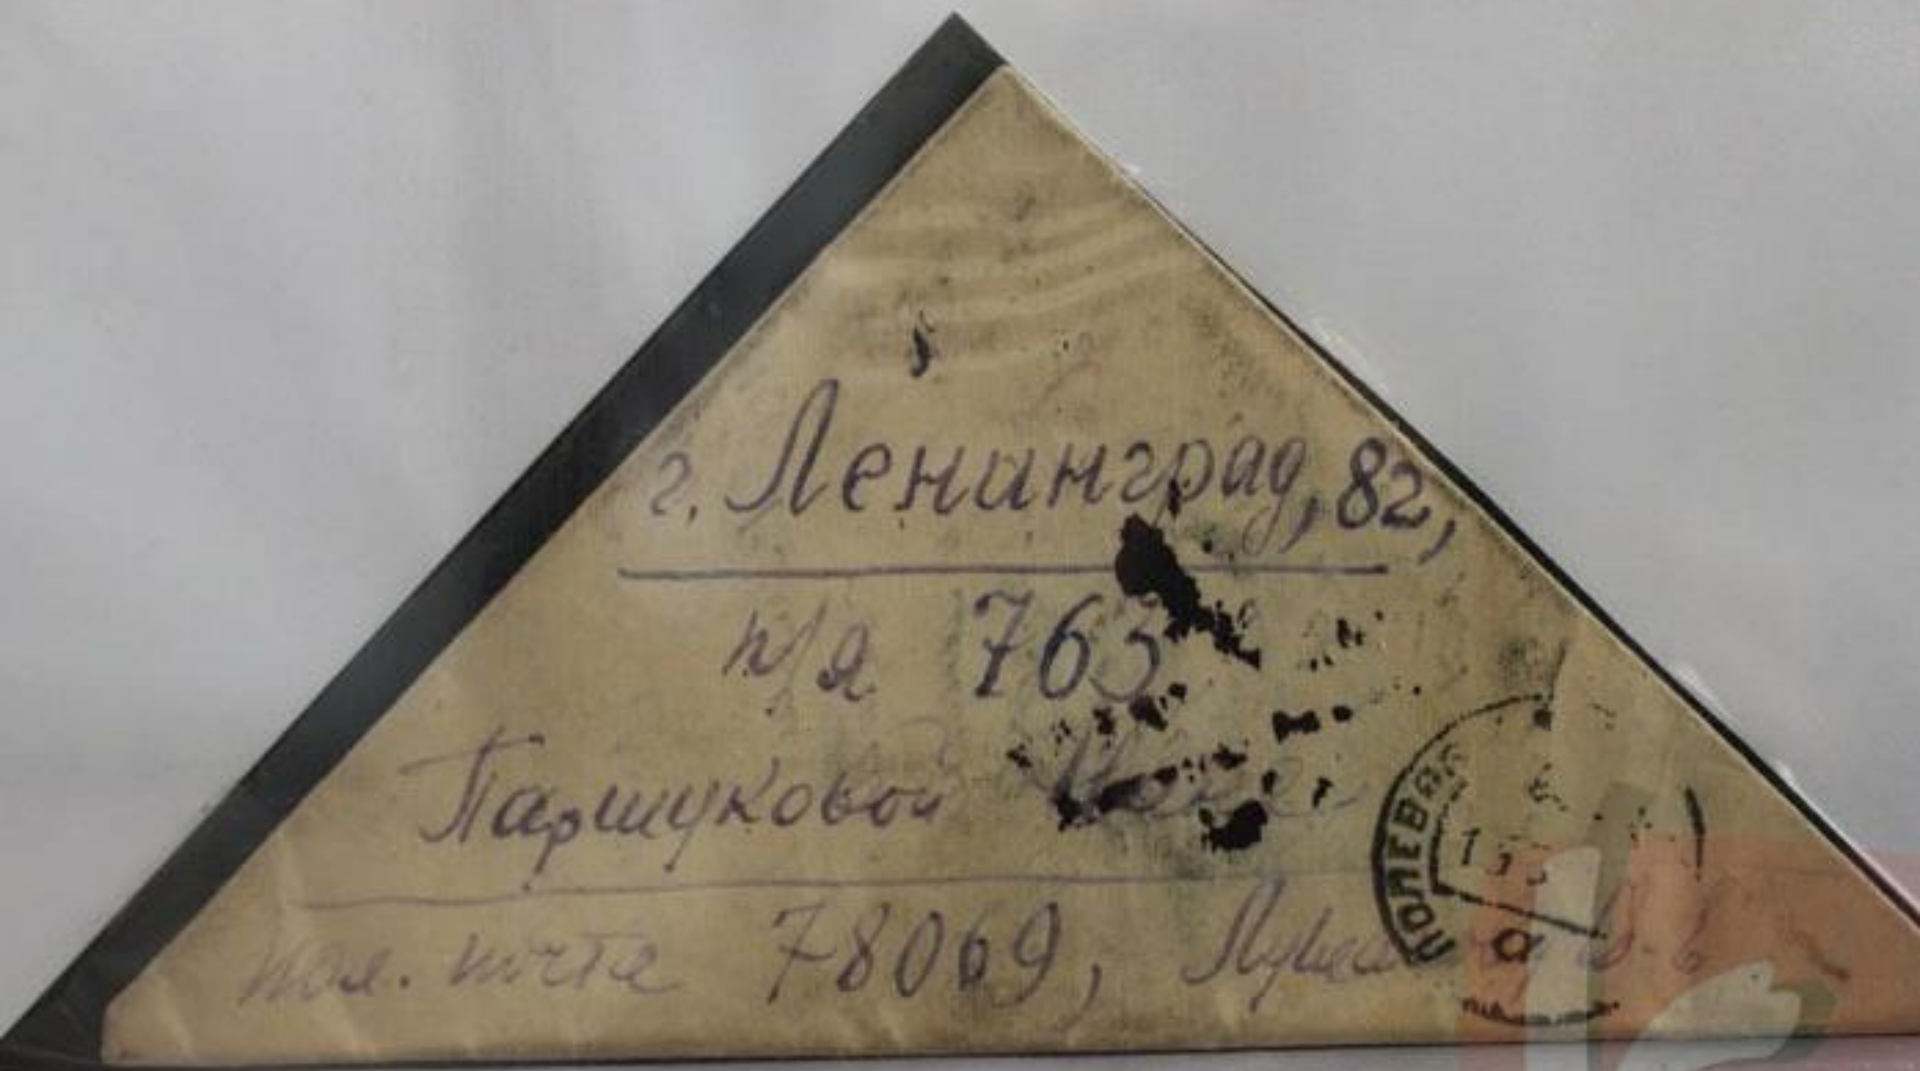 г. Ленинград, 82,
п/я 763
Паршуковой
пол. почта 78069,
ПОЛЕВАЯ
а